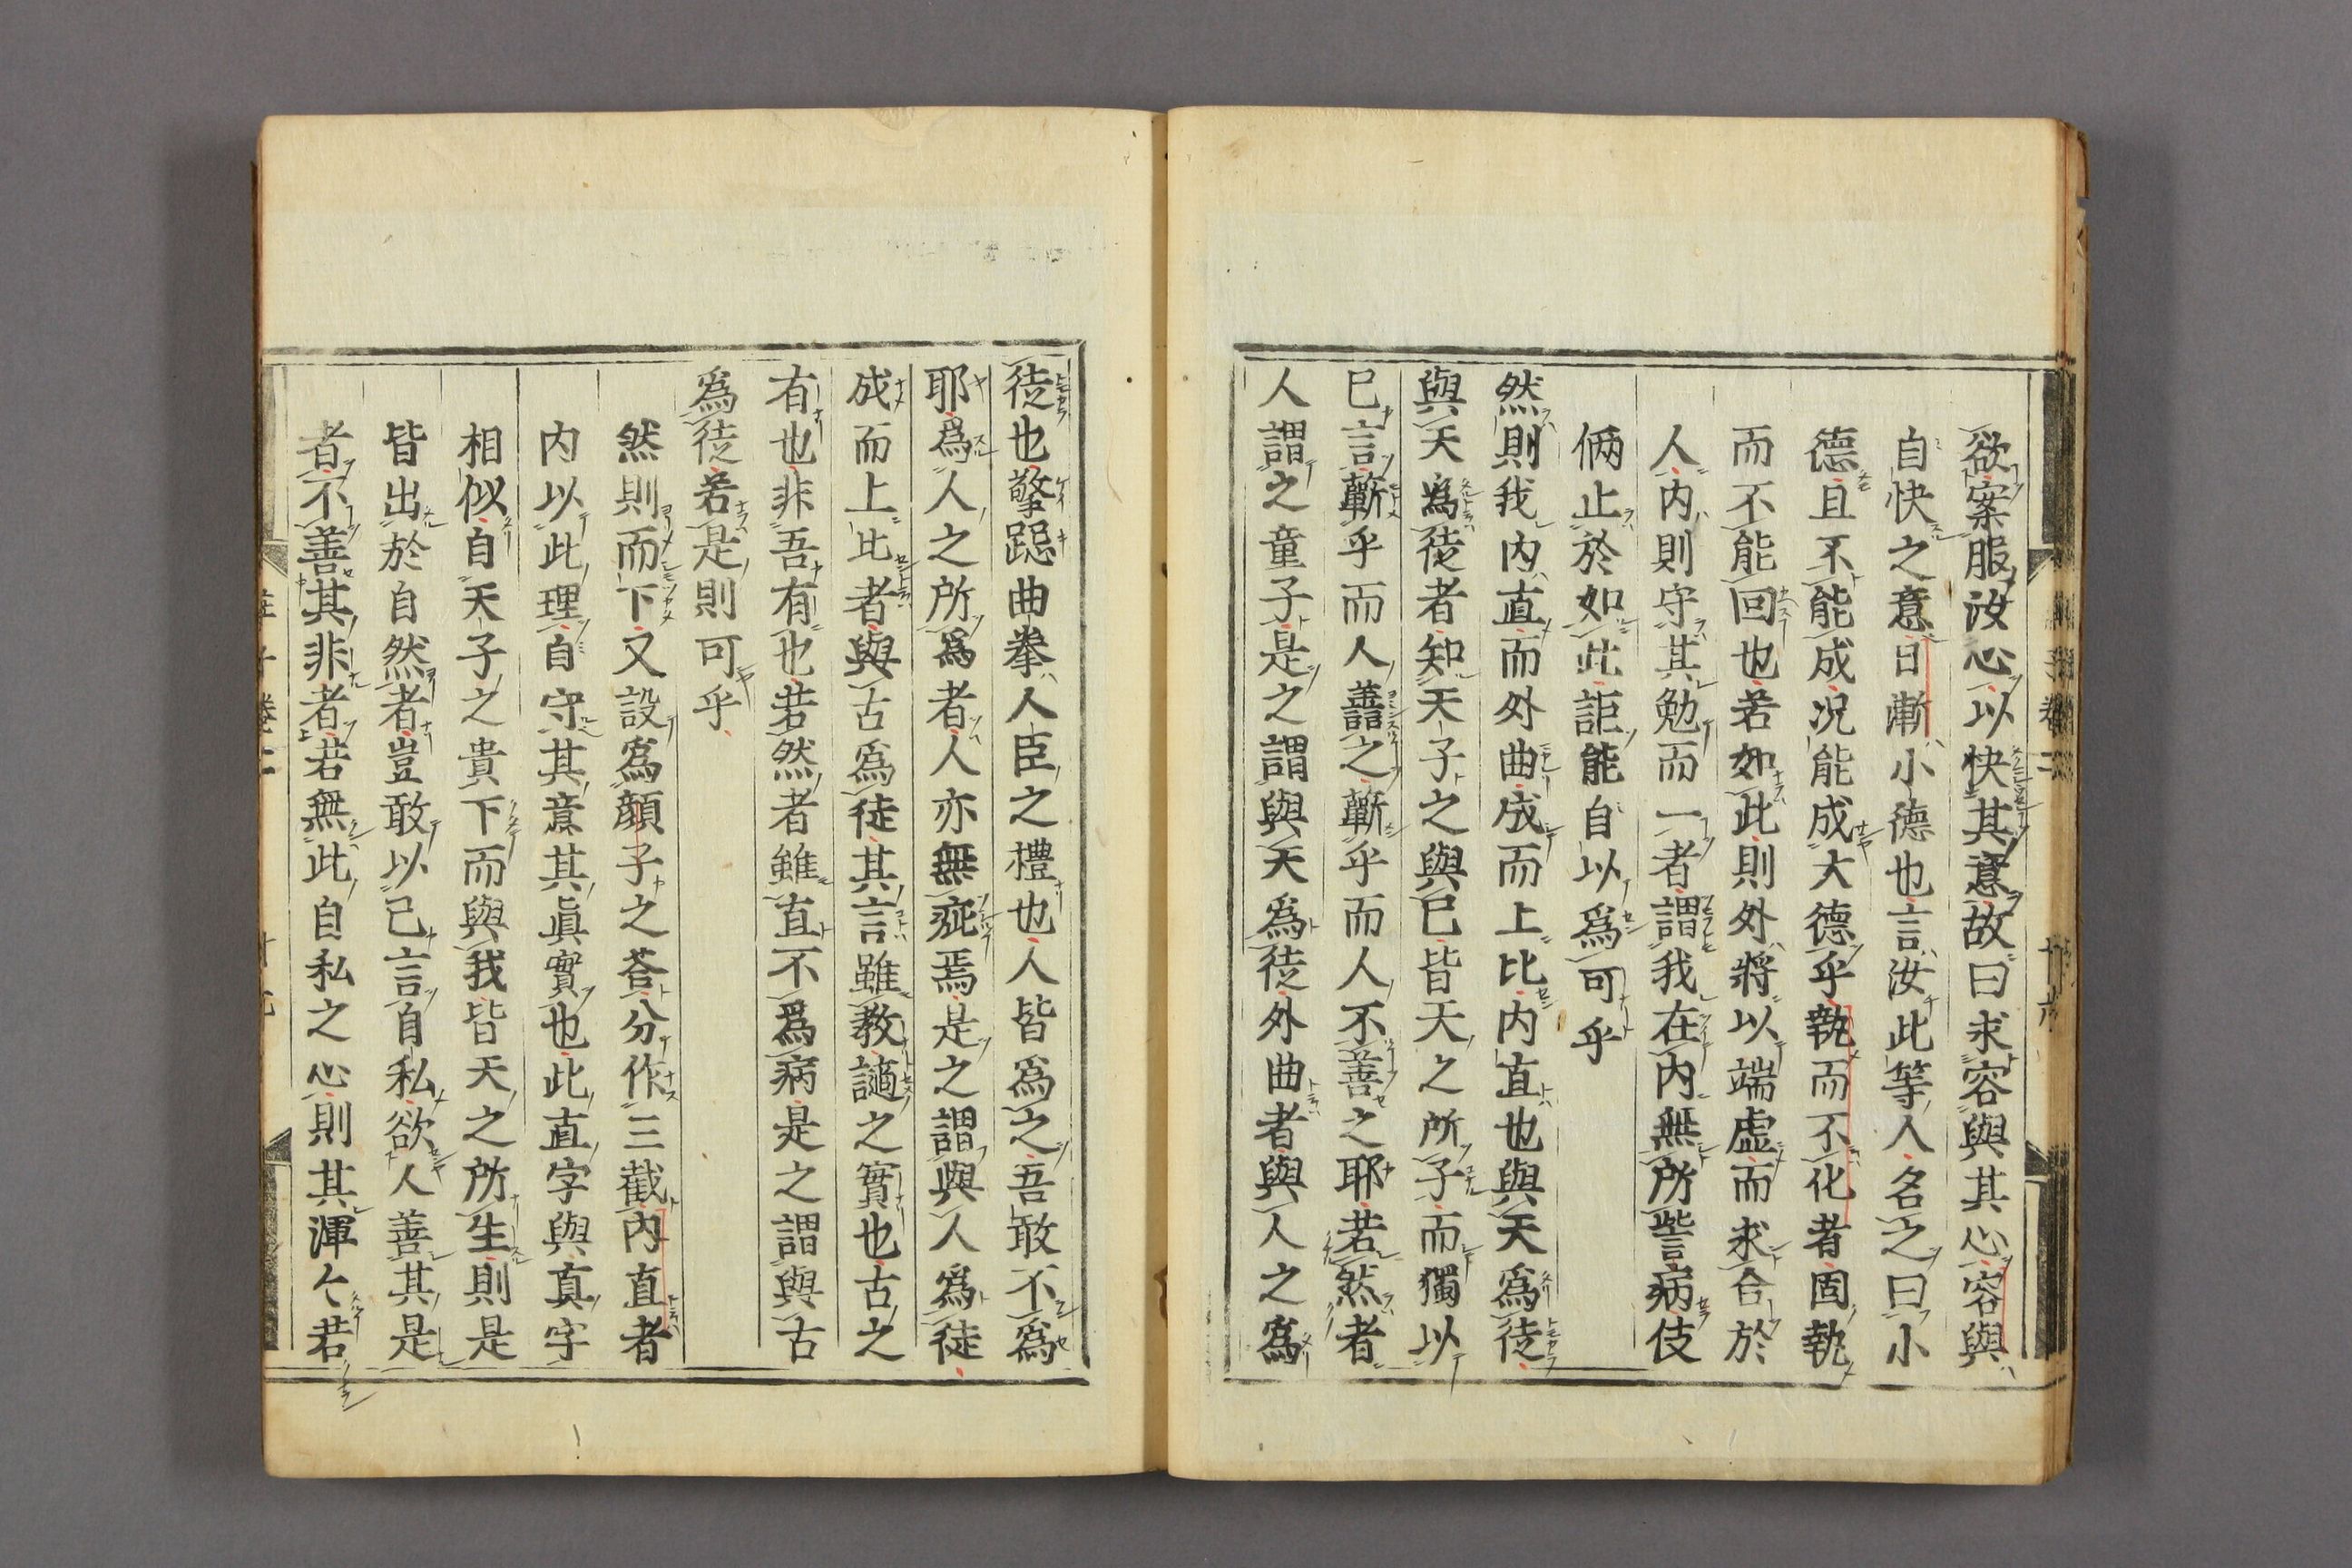 欲案服汝心以快其意故曰求容與其心容與
自快之意日漸小德也言汝此等人名之曰小
德且不能成况能成大德乎執而不化者固執
而不能回也若如此則外將以端虚而求合於
人内則守其勉而一者謂我在内無所訾病伎
倆止於如此詎能自以爲可乎
然則我内直而外曲成而上比内直也與天爲徒
與天爲徒者知天子之與已皆天之所子而獨以
已言蘄乎而人善之蘄乎而人不善之耶若然者
人謂之童子是之謂與天爲徒外曲者與人之爲
徒也擎跽曲拳人臣之禮也人皆爲之吾敢不爲
耶爲人之所爲者人亦無疵焉是之謂與人爲徒
成而上比者與古爲徒其言雖教讁之實也古之
有也非吾有也若然者雖直不爲病是之謂與古
爲徒若是則可乎
然則而下又設爲顔子之荅分作三截内直者
内以此理自守其意其眞實也此直字與真字
相似自天子之貴下而與我皆天之所生則是
皆出於自然者豈敢以己言自私欲人善其是
者不善其非者若無此自私之心則其渾仒若